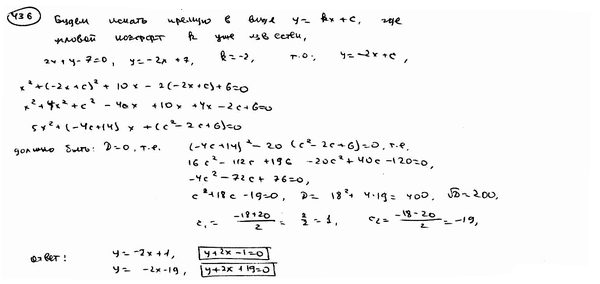 436 Будем искать прямую в виде y = kx + c, где
угловой коэффт k уже известен,
2x+y-7=0, y=-2x+7, k=-2, т.о.; y=-2x+c,
x²+(-2x+c)²+10x-2(-2x+c)+6=0
x²+4x²+c²-4cx+10x+4x-2c+6=0
5x²+(-4c+14)x+(c²-2c+6)=0
должно быть: D=0, т.е. (-4c+14)²-20(c²-2c+6)=0, т.е.
16c²-112c+196-20c²+40c-120=0,
-4c²-72c+76=0,
c²+18c-19=0, D=18²+4·19=400, √D=200,
c₁=(-18+20)/2=2/2=1, c₂=(-18-20)/2=-19,
Ответ: y=-2x+1, y+2x-1=0
y=-2x-19, y+2x+19=0